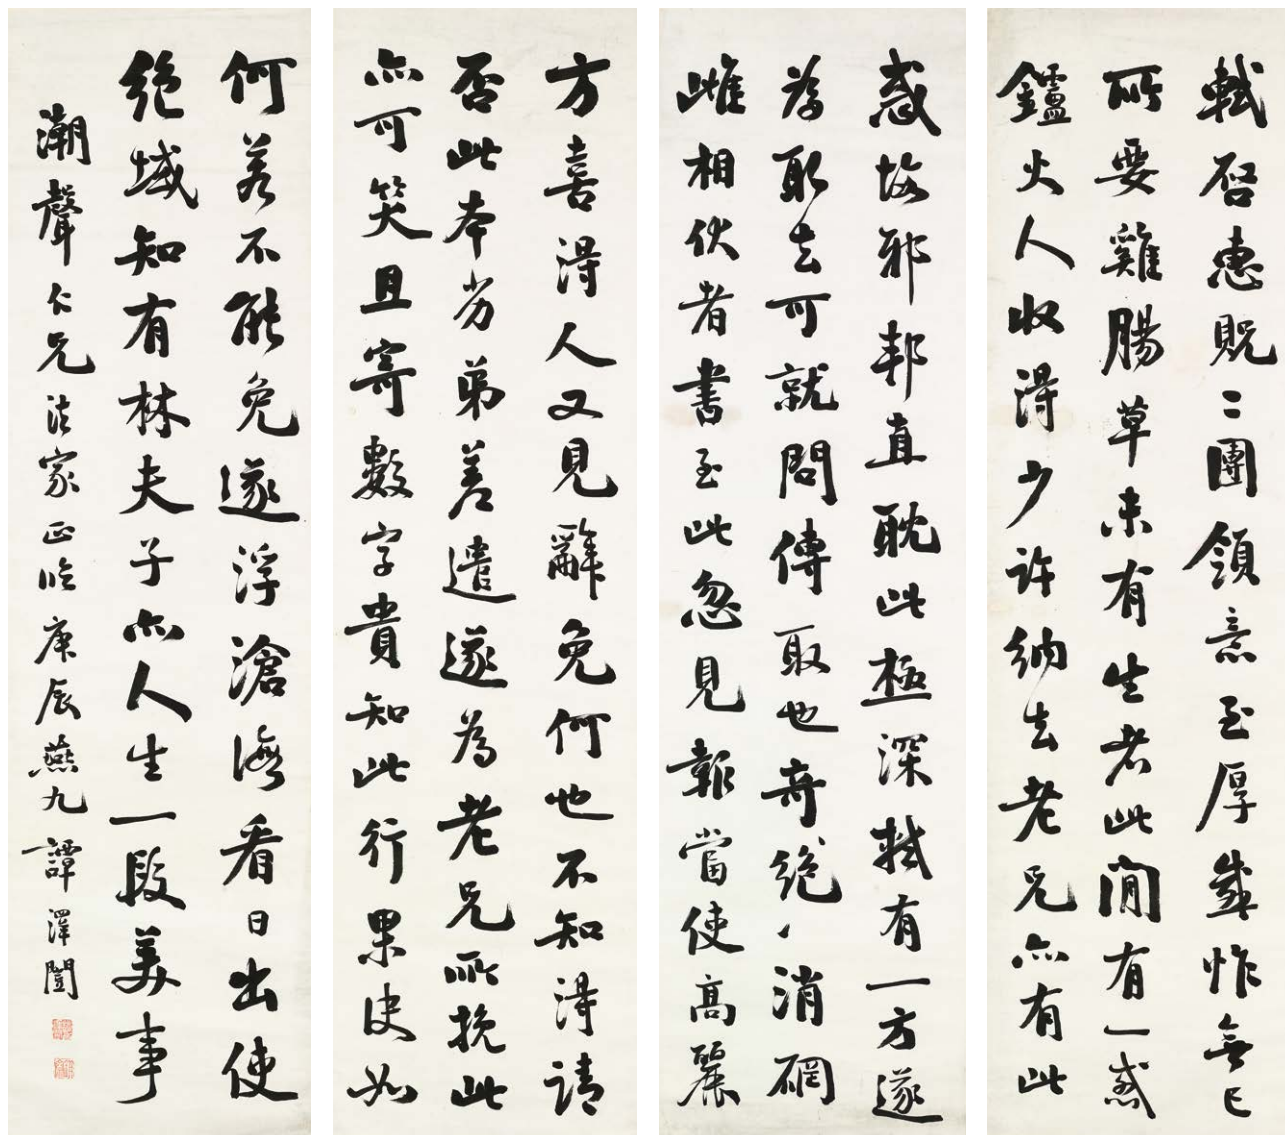 軾啓惠貺二團領意至厚感怍無已
所要雞腸草未有生者此間有一惑
鑪火人收得少許納去老兄亦有此
惑悔邪邦直耽此極深軾有一方遂
為取去可就問傳取也奇絕丶消硇
雌相伏者書至此忽見報當使高麗
方喜得人又見辭免何也不知得請
否此本劣弟差遣遂為老兄所挽此
亦可笑且寄數字貴知此行果決如
何若不能免遂浮滄海看日出使
絕域知有林夫子亦人生一段美事
潮聲仁兄法家正臨庚辰燕九譚澤闓